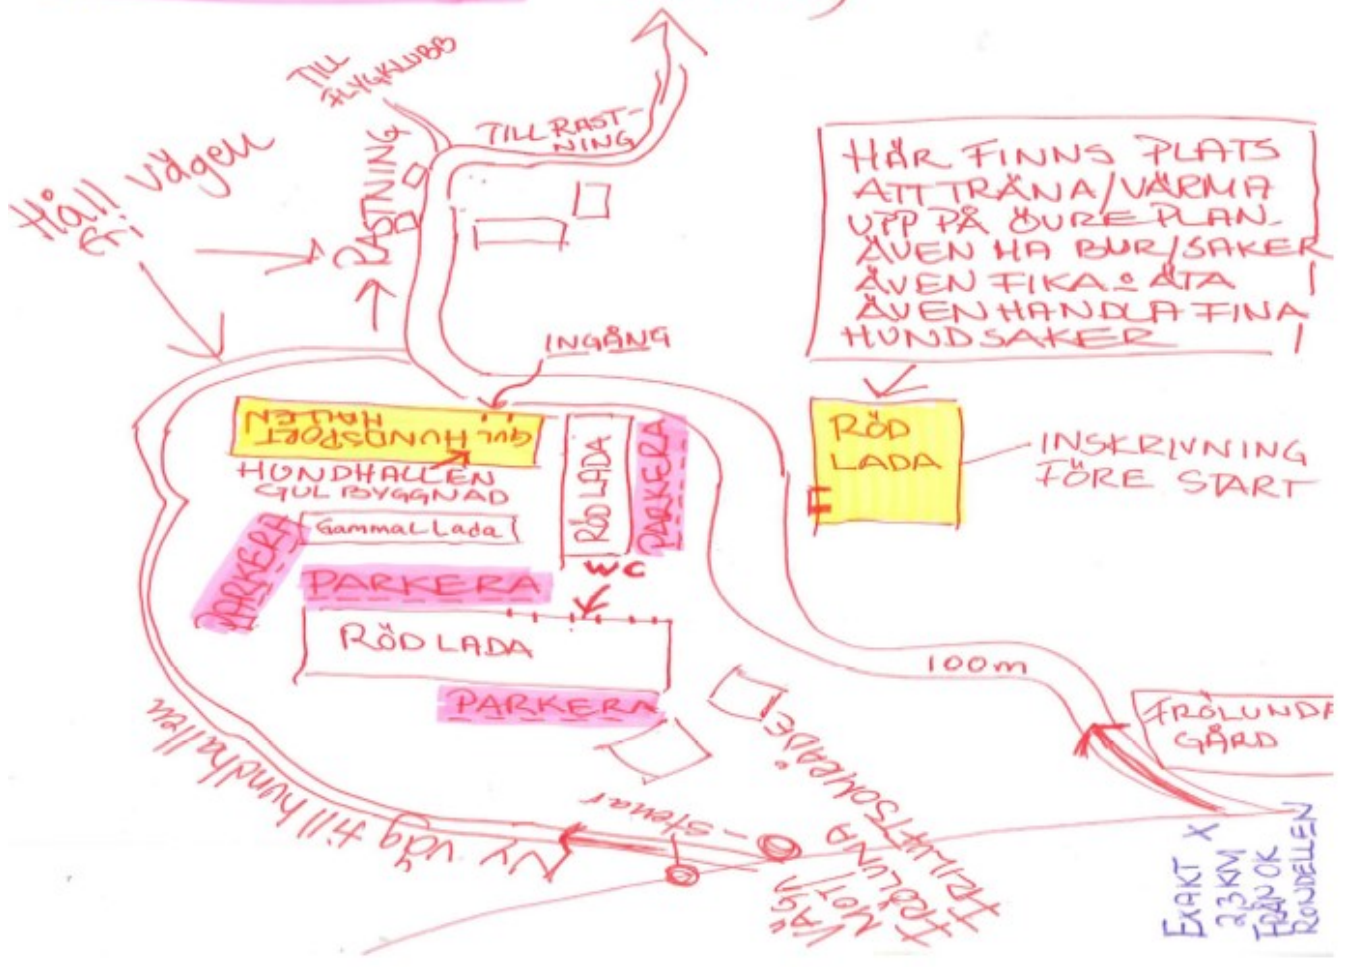 TILL
FLYGKLUBB
TILL RAST-
NING
Håll vägen
fri
RASTNING
HÄR FINNS PLATS
ATT TRÄNA/VÄRMA
UPP PÅ ÖVRE PLAN.
ÄVEN HA BUR/SAKER
ÄVEN FIKA o ÄTA
ÄVEN HANDLA FINA
HUNDSAKER
INGÅNG
GUL HUNDSPORT
HALLEN
HUNDHALLEN
GUL BYGGNAD
Gammal Lada
RÖD LADA
PARKERA
RÖD
LADA
INSKRIVNING
FÖRE START
PARKERA
PARKERA
WC
RÖD LADA
PARKERA
100m
FRÖLUNDA
GÅRD
Ny väg till hundhallen
-stenar
VÄG
MOT
FRÖLUNA
FRILUFTSOMRÅDE
EXAKT X
2,3 KM
FRÅN OK
RONDELLEN